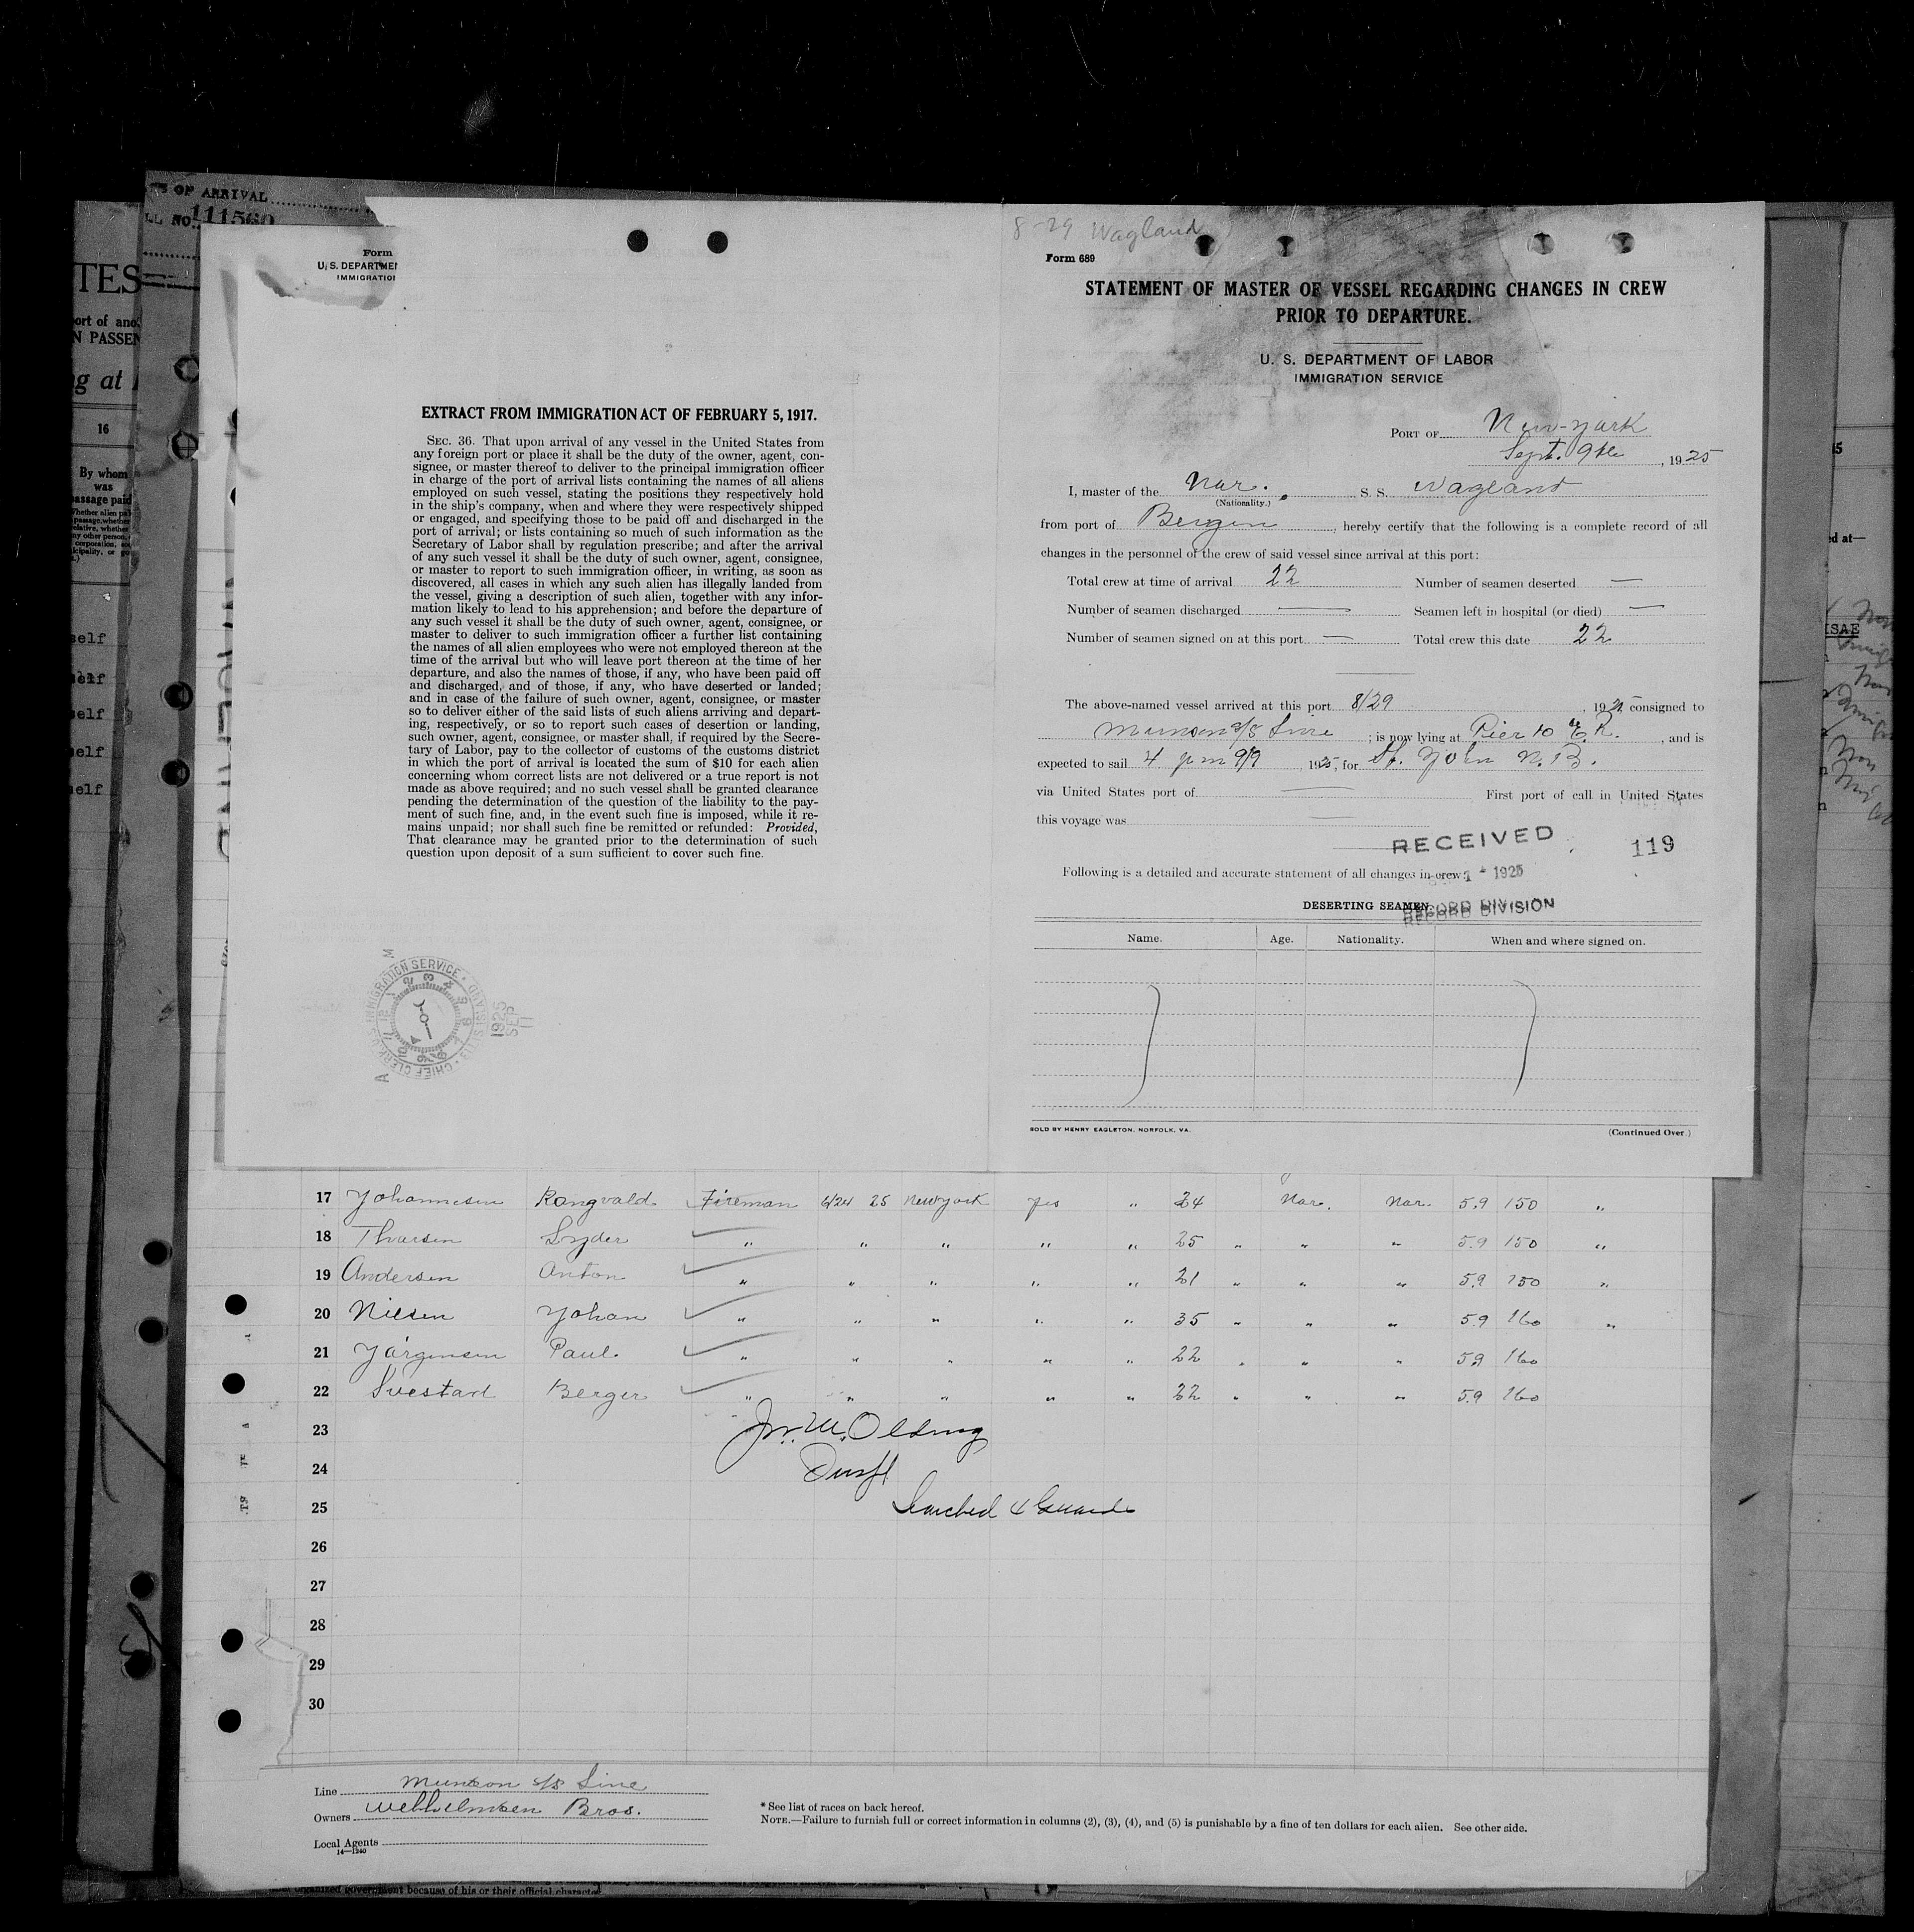 OF ARRIVAL
NO. 111560
TES
N PASSEN
g at
16
By whom
was
passage paid
self
self
self
self
self
Form
U. S. DEPARTMEN
IMMIGRATIO
EXTRACT FROM IMMIGRATION ACT OF FEBRUARY 5, 1917.
SEC. 36. That upon arrival of any vessel in the United States from
any foreign port or place it shall be the duty of the owner, agent, con-
signee, or master thereof to deliver to the principal immigration officer
in charge of the port of arrival lists containing the names of all aliens
employed on such vessel, stating the positions they respectively hold
in the ship's company, when and where they were respectively shipped
or engaged, and specifying those to be paid off and discharged in the
port of arrival; or lists containing so much of such information as the
Secretary of Labor shall by regulation prescribe; and after the arrival
of any such vessel it shall be the duty of such owner, agent, consignee,
or master to report to such immigration officer, in writing, as soon as
discovered, all cases in which any such alien has illegally landed from
the vessel, giving a description of such alien, together with any infor-
mation likely to lead to his apprehension; and before the departure of
any such vessel it shall be the duty of such owner, agent, consignee, or
master to deliver to such immigration officer a further list containing
the names of all alien employees who were not employed thereon at the
time of the arrival but who will leave port thereon at the time of her
departure, and also the names of those, if any, who have been paid off
and discharged, and of those, if any, who have deserted or landed;
and in case of the failure of such owner, agent, consignee, or master
so to deliver either of the said lists of such aliens arriving and depart-
ing, respectively, or so to report such cases of desertion or landing,
such owner, agent, consignee, or master shall, if required by the Secre-
tary of Labor, pay to the collector of customs of the customs district
in which the port of arrival is located the sum of $10 for each alien
concerning whom correct lists are not delivered or a true report is not
made as above required; and no such vessel shall be granted clearance
pending the determination of the question of the liability to the pay-
ment of such fine, and, in the event such fine is imposed, while it re-
mains unpaid; nor shall such fine be remitted or refunded: Provided,
That clearance may be granted prior to the determination of such
question upon deposit of a sum sufficient to cover such fine.
IMMIGRATION SERVICE · ELLIS ISLAND · CHIEF CLERK U.S.
1925
SEP
11
8-29 Wagland
Form 689
STATEMENT OF MASTER OF VESSEL REGARDING CHANGES IN CREW
PRIOR TO DEPARTURE.
U. S. DEPARTMENT OF LABOR
IMMIGRATION SERVICE
PORT OF New-York
Sept. 9th, 1925
I, master of the Nor. S. S. Wagland
(Nationality.)
from port of Bergen, hereby certify that the following is a complete record of all
changes in the personnel of the crew of said vessel since arrival at this port:
Total crew at time of arrival 22 Number of seamen deserted —
Number of seamen discharged — Seamen left in hospital (or died) —
Number of seamen signed on at this port — Total crew this date 22
The above-named vessel arrived at this port 8/29, 1925 consigned to
Munson S/S Line; is now lying at Pier 10 E. R., and is
expected to sail 4 pm 9/9 1925, for St. John N. B.
via United States port of — First port of call in United States
this voyage was —
RECEIVED
119
Following is a detailed and accurate statement of all changes in crew:
1925
DESERTING SEAMEN
RECORD DIVISION
Name. Age. Nationality. When and where signed on.
SOLD BY HENRY EAGLETON, NORFOLK, VA. (Continued Over.)
17 Johannesen Rangvald Fireman 6/24 25 New York Yes " 24 Nor. Nor. 5.9 150 "
18 Thorsen Lyder " " " " " 25 " " " 5.9 150 "
19 Andersen Anton " " " " " 21 " " " 5.9 150 "
20 Nilsen Johan " " " " " 35 " " " 5.9 160 "
21 Jörgensen Paul. " " " " " 22 " " " 5.9 160
22 Berger " " " " " 22 " " " 5.9 160
23
24
25 Searched & Guards
26
27
28
29
30
Line Munson S/S Line
Owners Wilhelmsen Bros.
Local Agents
14—1240
* See list of races on back hereof.
NOTE.—Failure to furnish full or correct information in columns (2), (3), (4), and (5) is punishable by a fine of ten dollars for each alien. See other side.
organized government because of his or their official character